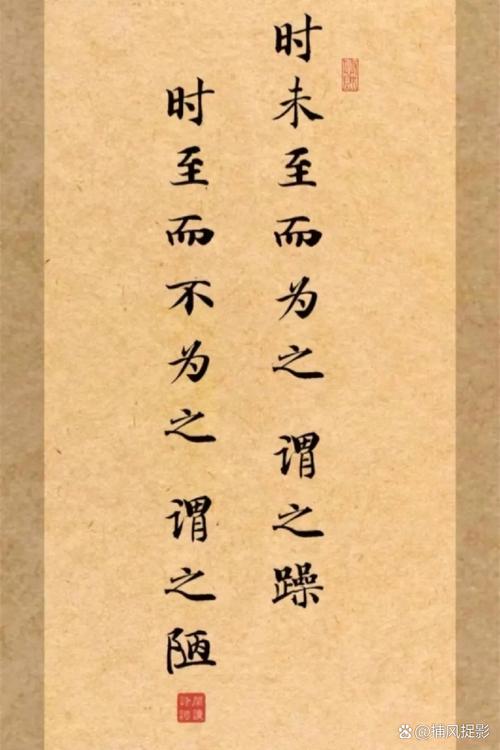 时未至而为之 谓之躁
时至而不为之 谓之陋
捕风捉影